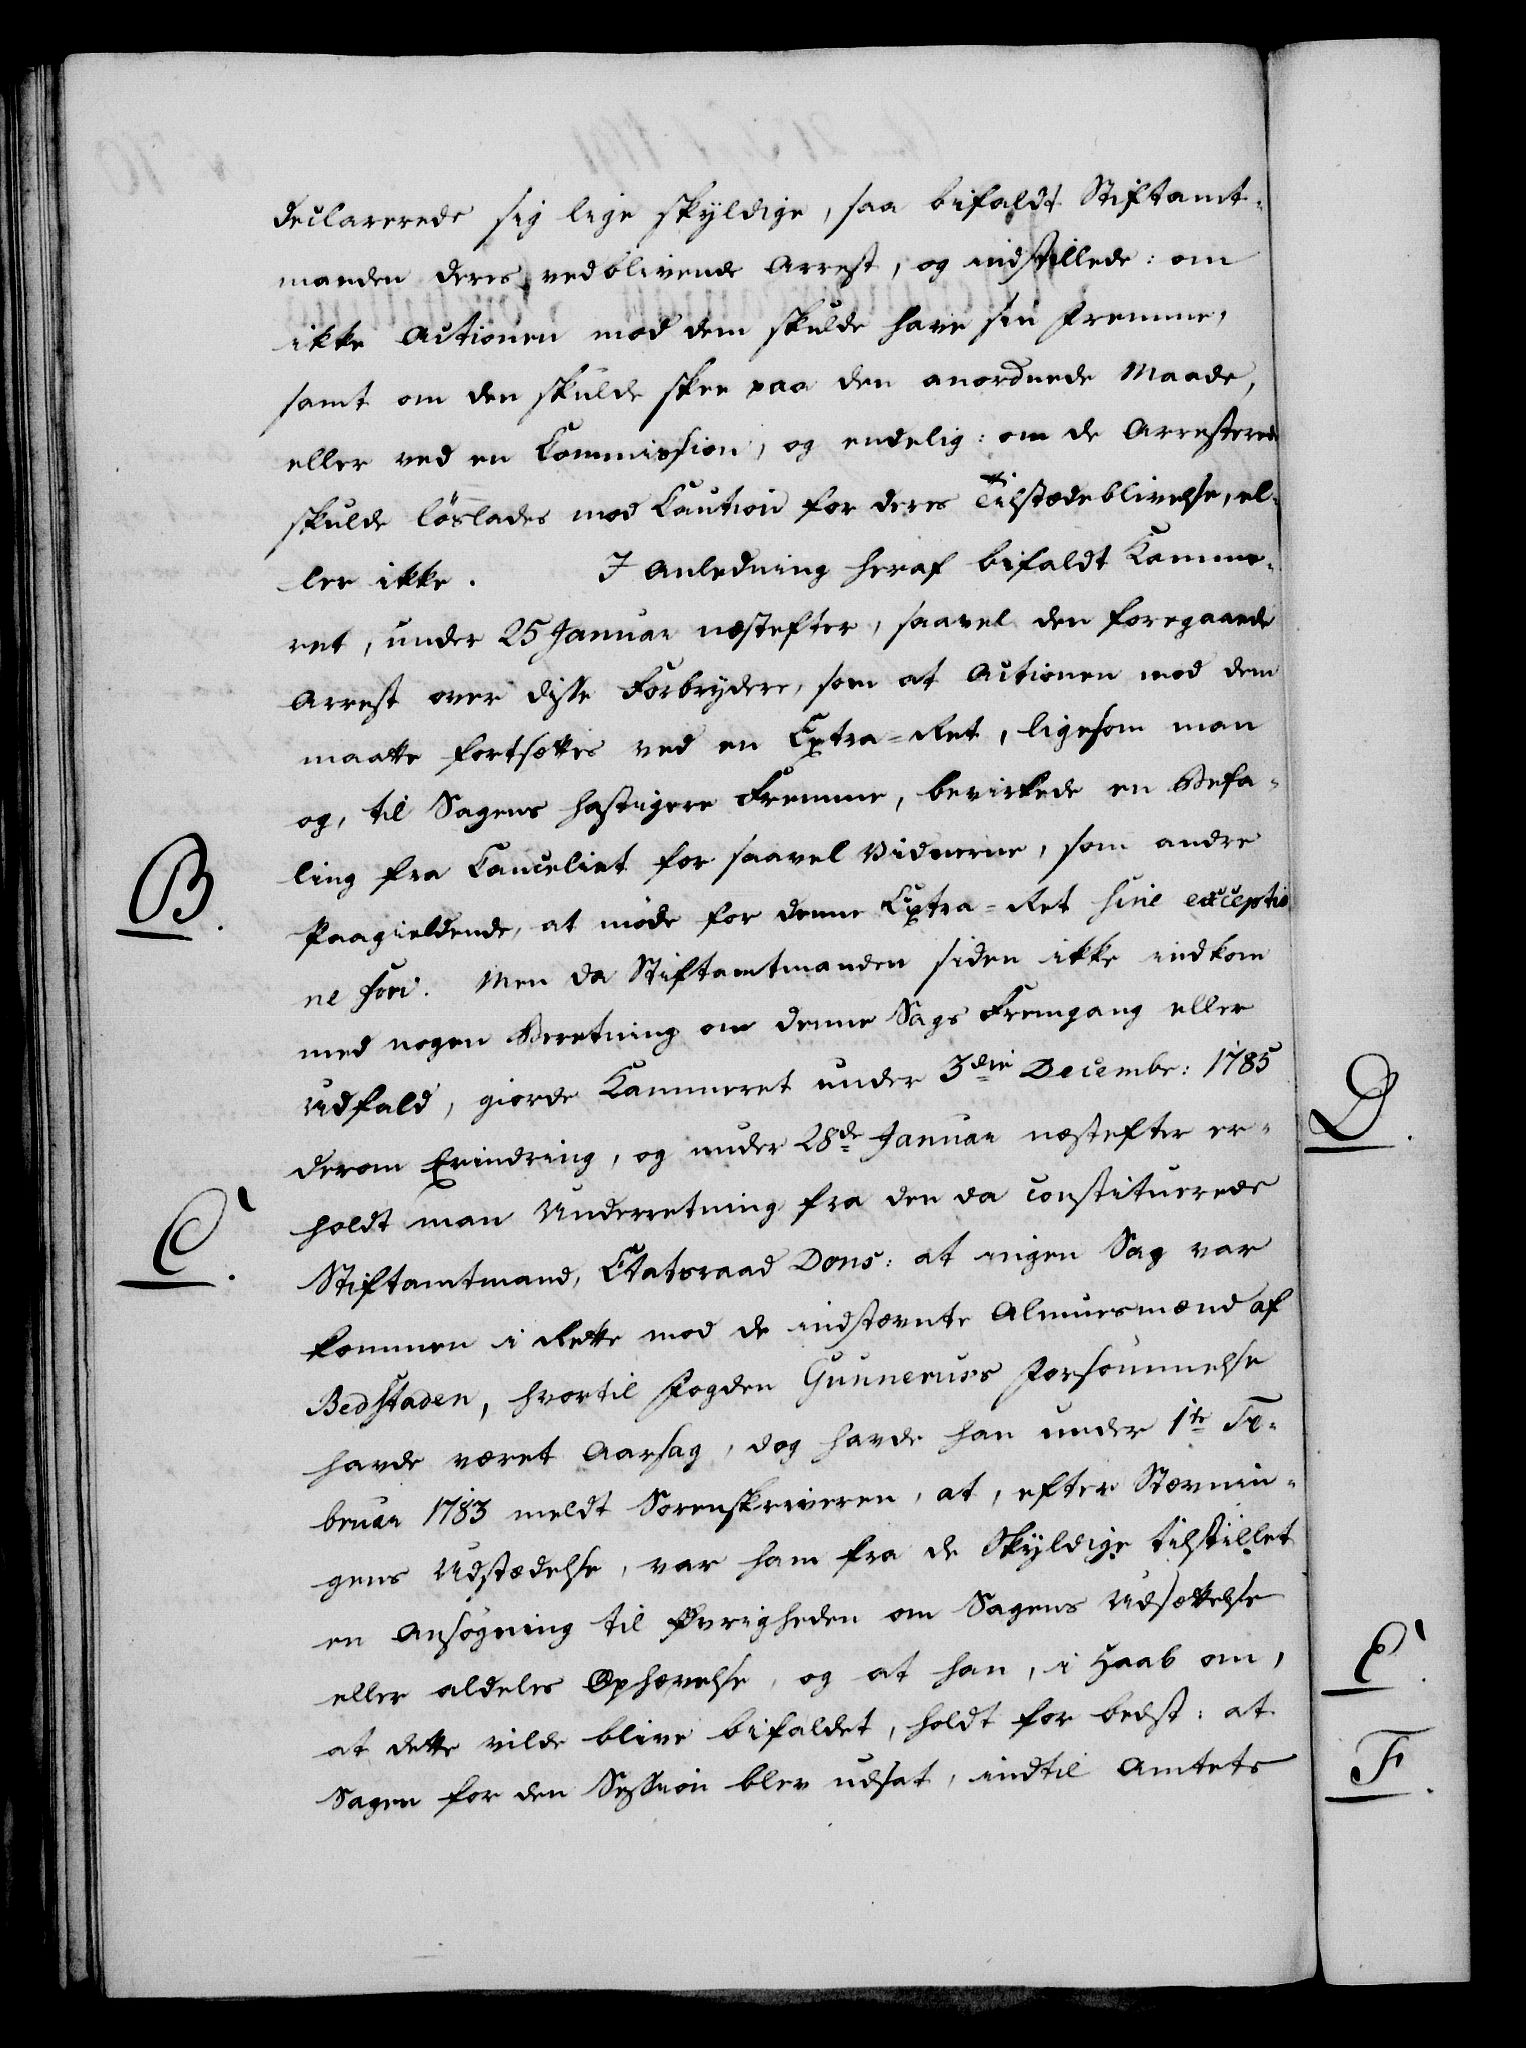 declarerede sig lige skyldige, saa bifaldt Stiftamt-
manden deres vedblivende Arrest, og indstillede: om
ikke Actionen mod dem skulde have sin Fremme,
samt om den skulde skee paa den anordnede Maade,
eller ved en Commission, og endelig: om de Arresterede
skulde löslades mod Caution for deres Tilstædeblivelse, el-
ler ikke. I Anledning heraf bifaldt Kamme-
ret, under 25 Januar næstefter, saavel den foregaaende
Arrest over disse Forbrydere, som at Actionen mod dem
maatte fortsættes ved en Extra-Ret, ligesom man
og, til Sagens hastigere Fremme, bevirkede en Befa-
ling fra Canceliet for saavel Vidnerne, som andre
B.
Paagieldende, at möde for denne Extra-Ret sine exceptio
ne fori. Men da Stiftamtmanden siden ikke indkom
med nogen Beretning om denne Sags Fremgang eller
Udfald, giorde Kammeret under 3die Decembr: 1785
D.
derom Erindring, og under 28de Januar næstefter er-
holdt man Underretning fra den da constituerede
C.
Stiftamtmand, Etatsraad Dons: at ingen Sag var
kommen i Rette mod de indstævnte Almuesmænd af
Bedstaden, hvortil Fogden Gunnerus's Forsömmelse
havde været Aarsag, dog havde han under 1te Fe-
bruar 1783 meldt Sorenskriveren, at, efter Stævnin-
gens Udstædelse, var ham fra de Skyldige tilstillet
en Ansögning til Øvrigheden om Sagens Udsættelse
eller aldeles Ophævelse, og at han, i Haab om,
E.
at dette vilde blive bifaldet, holdt for bedst: at
Sagen for den Session blev udsat, indtil Amtets
F.